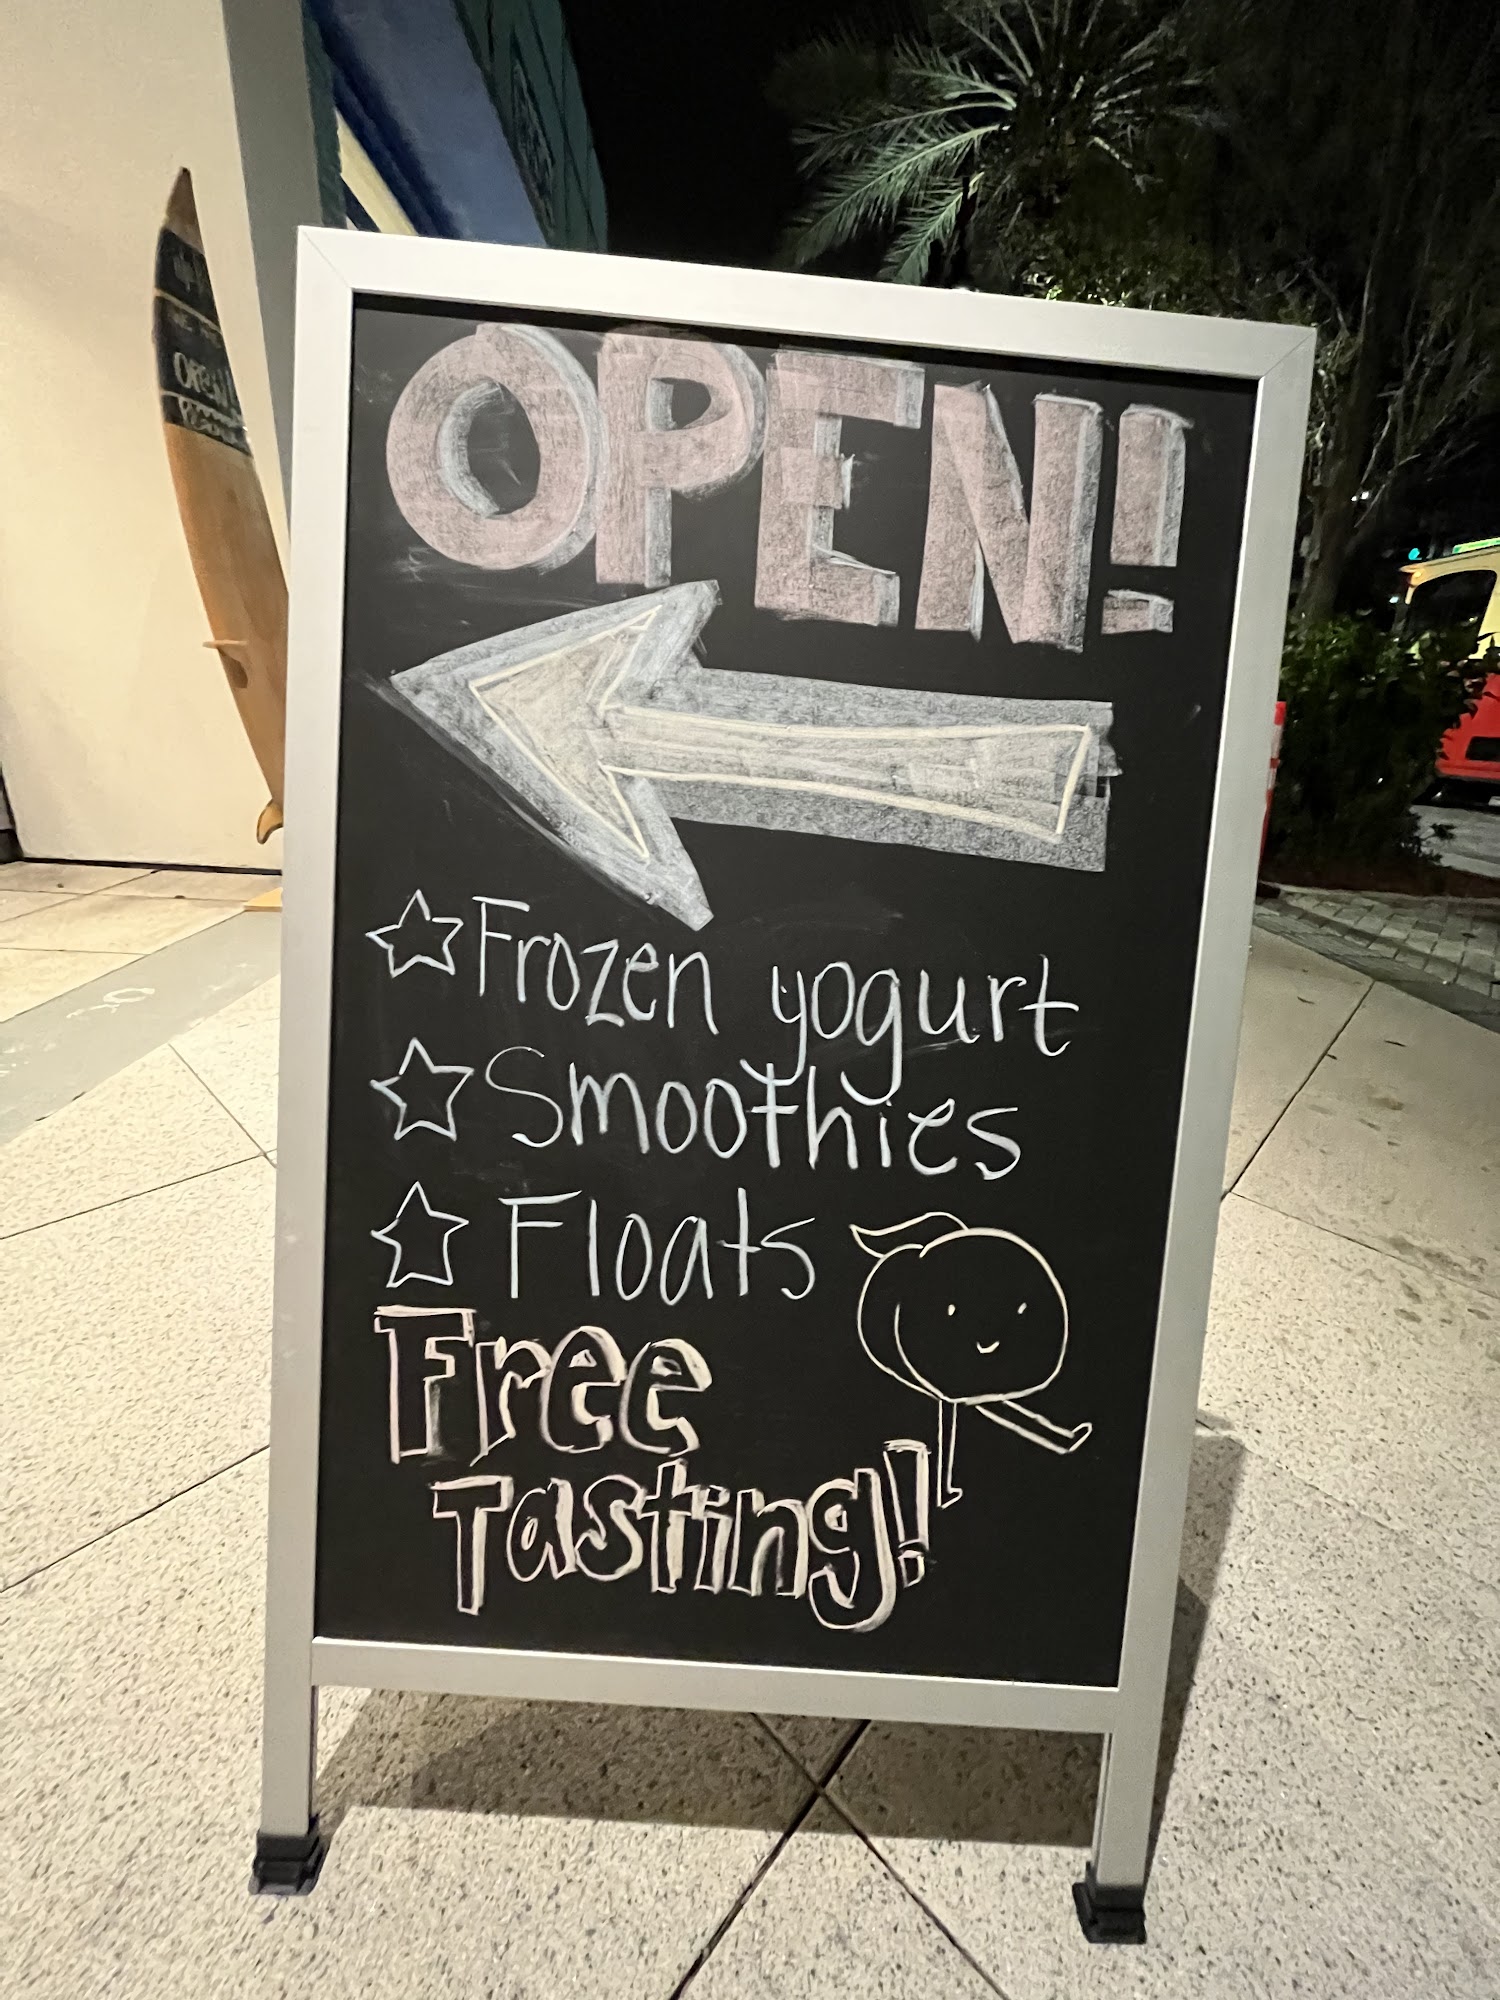 OPEN!
Frozen yogurt
Smoothies
Floats
Free
Tasting!
OPEN!